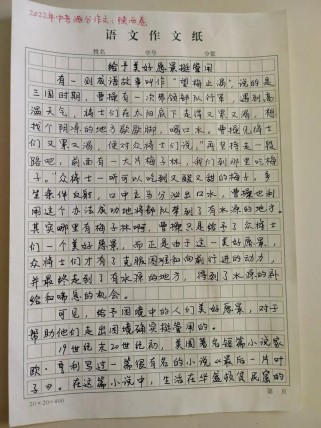 2022年中考满分作文:陕西卷
语文作文纸
姓名 学号 分数
给予美好愿景挺管用
有一则成语故事叫作“望梅止渴”,说的是
三国时期,曹操有一次带领部队行军,遇到高
温天气,将士们在太阳底下走得又累又渴,想
找个阴凉的地方歇歇脚,喝口水,曹操见将士
们又累又渴,便对众将士们说:“再坚持走一段
路吧,前面有一大片梅子林,我们到那里吃梅
子。”众将士一听可以吃到又酸又甜的梅子,多
生条件反射,口中立马分泌出口水,曹操也利
用这个办法成功地将部队带到了有水源的地方。
其实哪里有梅子林啊,曹操只是给予了众将士
们一个美好愿景,而正是由于这一美好愿景,
众将士们才有了克服困难和向前行进的动力,
并最终走到了有水源的地方,得到了水源的补
给和喘息的机会。
可见,给予困境中的人们美好愿景,对于
帮助他们走出困境确实挺管用的。
19世纪末20世纪初,美国著名短篇小说家
欧·亨利写过一篇很有名的小说《最后一片叶
子》。在这篇小说中,生活在华盛顿贫民窟的
20×20=400
第 页